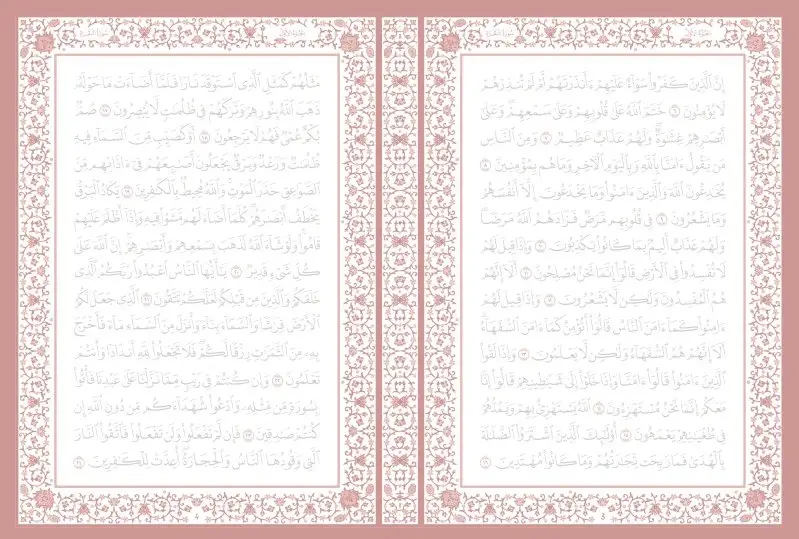 الجزء الأول
سورة البقرة
إِنَّ ٱلَّذِينَ كَفَرُوا۟ سَوَآءٌ عَلَيْهِمْ ءَأَنذَرْتَهُمْ أَمْ لَمْ تُنذِرْهُمْ
لَا يُؤْمِنُونَ ٦ خَتَمَ ٱللَّهُ عَلَىٰ قُلُوبِهِمْ وَعَلَىٰ سَمْعِهِمْ ۖ وَعَلَىٰٓ
أَبْصَـٰرِهِمْ غِشَـٰوَةٌ ۖ وَلَهُمْ عَذَابٌ عَظِيمٌ ٧ وَمِنَ ٱلنَّاسِ
مَن يَقُولُ ءَامَنَّا بِٱللَّهِ وَبِٱلْيَوْمِ ٱلْـَٔاخِرِ وَمَا هُم بِمُؤْمِنِينَ ٨
يُخَـٰدِعُونَ ٱللَّهَ وَٱلَّذِينَ ءَامَنُوا۟ وَمَا يَخْدَعُونَ إِلَّآ أَنفُسَهُمْ
وَمَا يَشْعُرُونَ ٩ فِى قُلُوبِهِم مَّرَضٌ فَزَادَهُمُ ٱللَّهُ مَرَضًا ۖ
وَلَهُمْ عَذَابٌ أَلِيمٌۢ بِمَا كَانُوا۟ يَكْذِبُونَ ١٠ وَإِذَا قِيلَ لَهُمْ
لَا تُفْسِدُوا۟ فِى ٱلْأَرْضِ قَالُوٓا۟ إِنَّمَا نَحْنُ مُصْلِحُونَ ١١ أَلَآ إِنَّهُمْ
هُمُ ٱلْمُفْسِدُونَ وَلَـٰكِن لَّا يَشْعُرُونَ ١٢ وَإِذَا قِيلَ لَهُمْ
ءَامِنُوا۟ كَمَآ ءَامَنَ ٱلنَّاسُ قَالُوٓا۟ أَنُؤْمِنُ كَمَآ ءَامَنَ ٱلسُّفَهَآءُ ۗ
أَلَآ إِنَّهُمْ هُمُ ٱلسُّفَهَآءُ وَلَـٰكِن لَّا يَعْلَمُونَ ١٣ وَإِذَا لَقُوا۟
ٱلَّذِينَ ءَامَنُوا۟ قَالُوٓا۟ ءَامَنَّا وَإِذَا خَلَوْا۟ إِلَىٰ شَيَـٰطِينِهِمْ قَالُوٓا۟ إِنَّا
مَعَكُمْ إِنَّمَا نَحْنُ مُسْتَهْزِءُونَ ١٤ ٱللَّهُ يَسْتَهْزِئُ بِهِمْ وَيَمُدُّهُمْ
فِى طُغْيَـٰنِهِمْ يَعْمَهُونَ ١٥ أُو۟لَـٰٓئِكَ ٱلَّذِينَ ٱشْتَرَوُا۟ ٱلضَّلَـٰلَةَ
بِٱلْهُدَىٰ فَمَا رَبِحَت تِّجَـٰرَتُهُمْ وَمَا كَانُوا۟ مُهْتَدِينَ ١٦
3
الجزء الأول
سورة البقرة
مَثَلُهُمْ كَمَثَلِ ٱلَّذِى ٱسْتَوْقَدَ نَارًا فَلَمَّآ أَضَآءَتْ مَا حَوْلَهُۥ
ذَهَبَ ٱللَّهُ بِنُورِهِمْ وَتَرَكَهُمْ فِى ظُلُمَـٰتٍ لَّا يُبْصِرُونَ ١٧ صُمٌّۢ
بُكْمٌ عُمْىٌ فَهُمْ لَا يَرْجِعُونَ ١٨ أَوْ كَصَيِّبٍ مِّنَ ٱلسَّمَآءِ فِيهِ
ظُلُمَـٰتٌ وَرَعْدٌ وَبَرْقٌ يَجْعَلُونَ أَصَـٰبِعَهُمْ فِىٓ ءَاذَانِهِم مِّنَ
ٱلصَّوَٰعِقِ حَذَرَ ٱلْمَوْتِ ۚ وَٱللَّهُ مُحِيطٌۢ بِٱلْكَـٰفِرِينَ ١٩ يَكَادُ ٱلْبَرْقُ
يَخْطَفُ أَبْصَـٰرَهُمْ ۖ كُلَّمَآ أَضَآءَ لَهُم مَّشَوْا۟ فِيهِ وَإِذَآ أَظْلَمَ عَلَيْهِمْ
قَامُوا۟ ۚ وَلَوْ شَآءَ ٱللَّهُ لَذَهَبَ بِسَمْعِهِمْ وَأَبْصَـٰرِهِمْ ۚ إِنَّ ٱللَّهَ عَلَىٰ
كُلِّ شَىْءٍ قَدِيرٌ ٢٠ يَـٰٓأَيُّهَا ٱلنَّاسُ ٱعْبُدُوا۟ رَبَّكُمُ ٱلَّذِى
خَلَقَكُمْ وَٱلَّذِينَ مِن قَبْلِكُمْ لَعَلَّكُمْ تَتَّقُونَ ٢١ ٱلَّذِى جَعَلَ لَكُمُ
ٱلْأَرْضَ فِرَٰشًا وَٱلسَّمَآءَ بِنَآءً وَأَنزَلَ مِنَ ٱلسَّمَآءِ مَآءً فَأَخْرَجَ
بِهِۦ مِنَ ٱلثَّمَرَٰتِ رِزْقًا لَّكُمْ ۖ فَلَا تَجْعَلُوا۟ لِلَّهِ أَندَادًا وَأَنتُمْ
تَعْلَمُونَ ٢٢ وَإِن كُنتُمْ فِى رَيْبٍ مِّمَّا نَزَّلْنَا عَلَىٰ عَبْدِنَا فَأْتُوا۟
بِسُورَةٍ مِّن مِّثْلِهِۦ وَٱدْعُوا۟ شُهَدَآءَكُم مِّن دُونِ ٱللَّهِ إِن
كُنتُمْ صَـٰدِقِينَ ٢٣ فَإِن لَّمْ تَفْعَلُوا۟ وَلَن تَفْعَلُوا۟ فَٱتَّقُوا۟ ٱلنَّارَ
ٱلَّتِى وَقُودُهَا ٱلنَّاسُ وَٱلْحِجَارَةُ ۖ أُعِدَّتْ لِلْكَـٰفِرِينَ ٢٤
4